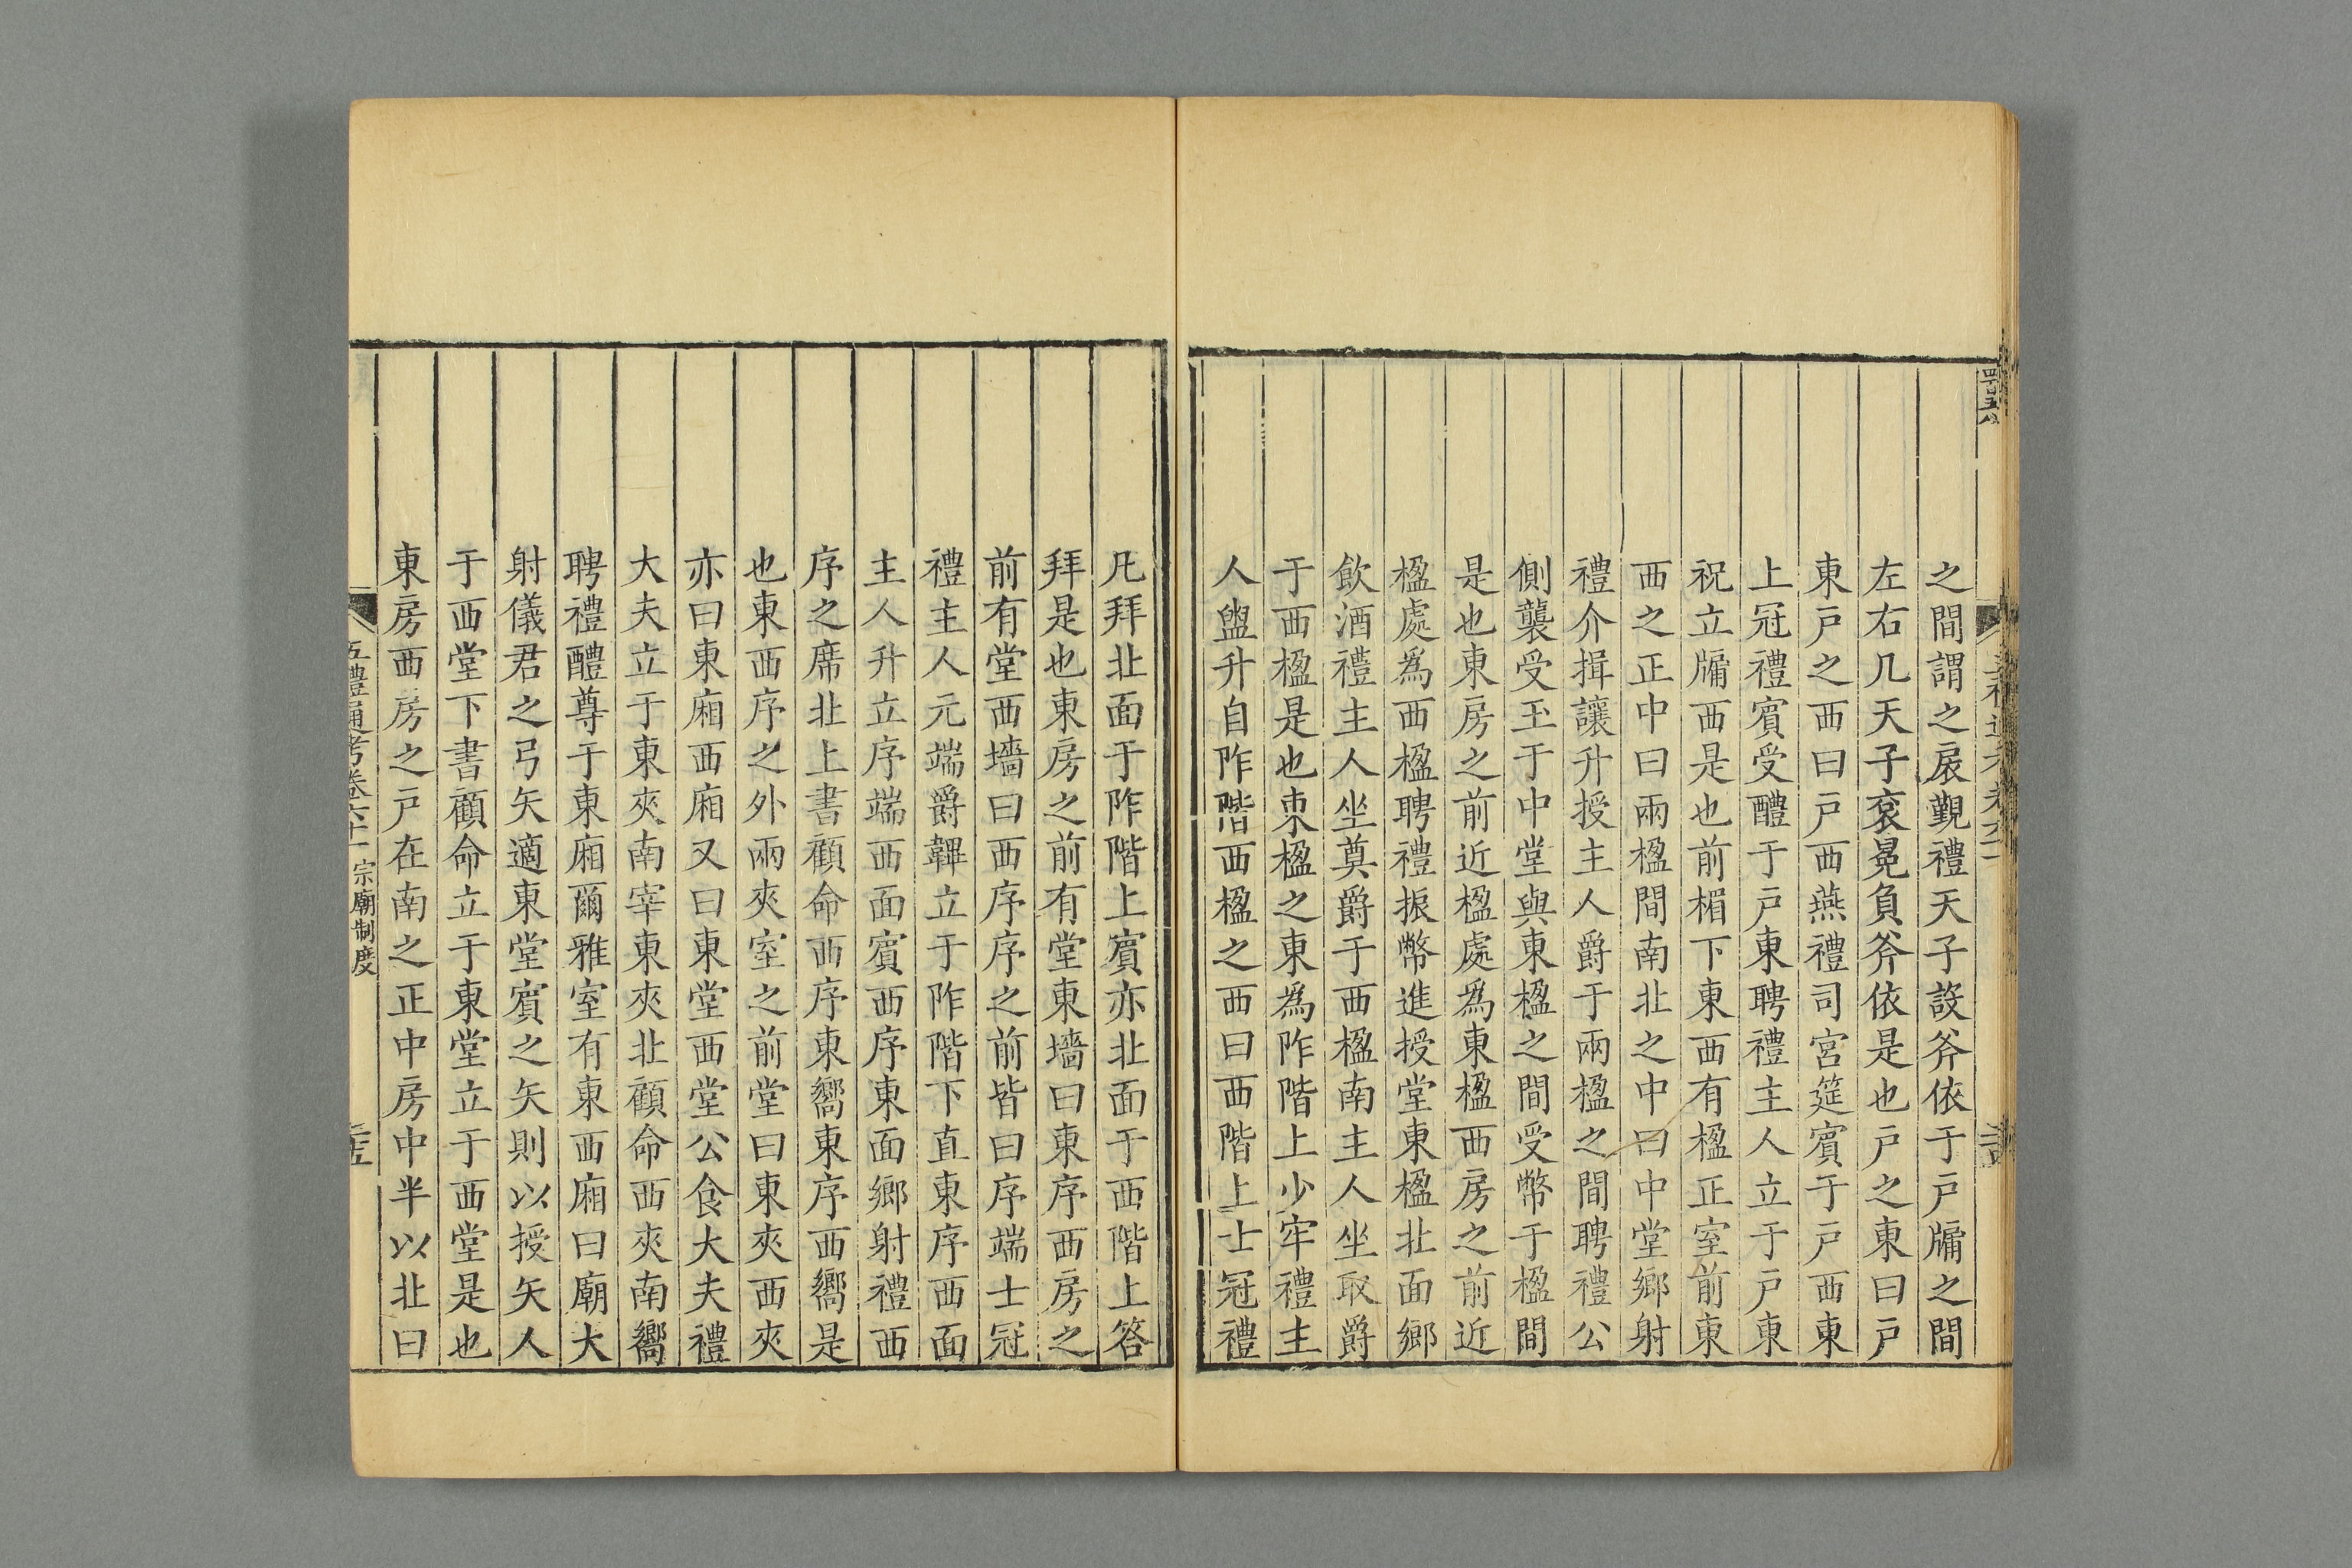 之間謂之扆觀禮天子設斧依于戸牖之間
左右几天子袞冕負斧依是也戸之東曰戸
東戸之西曰戸西燕禮司宮筵賔于戸西東
上冠禮賔受醴于戸東聘禮主人立于戸東
祝立牖西是也前楣下東西有楹正室前東
西之正中曰兩楹間南北之中曰中堂鄉射
禮介揖讓升授主人爵于兩楹之間聘禮公
側襲受玉于中堂與東楹之間受幣于楹間
是也東房之前近楹處爲東楹西房之前近
楹處爲西楹聘禮振幣進授堂東楹北面鄉
飲酒禮主人坐奠爵于西楹南主人坐取爵
于西楹是也東楹之東爲阼階上少牢禮主
人盥升自阼階西楹之西曰西階上士冠禮
凡拜北面于阼階上賔亦北面于西階上答
拜是也東房之前有堂東墻曰東序西房之
前有堂西墻曰西序序之前皆曰序端士冠
禮主人元端爵韠立于阼階下直東序西面
主人升立序端西面賔西序東面鄉射禮西
序之席北上書顧命西序東嚮東序西嚮是
也東西序之外兩夾室之前堂曰東夾西夾
亦曰東廂西廂又曰東堂西堂公食大夫禮
大夫立于東夾南宰東夾北顧命西夾南嚮
聘禮醴尊于東廂爾雅室有東西廂曰廟大
射儀君之弓矢適東堂賔之矢則以授矢人
于西堂下書顧命立于東堂立于西堂是也
東房西房之戸在南之正中房中半以北曰
五禮通考卷六十一 宗廟制度